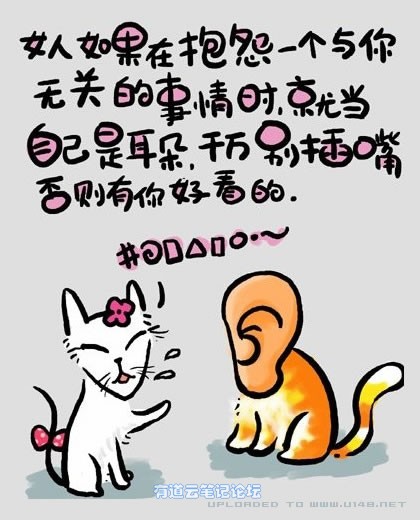 女人如果在抱怨一个与你
无关的事情时,就当
自己是耳朵,千万别插嘴
否则有你好看的.
#@□△□○·~
有道云笔记论坛
UPLOADED TO WWW.U148.NET